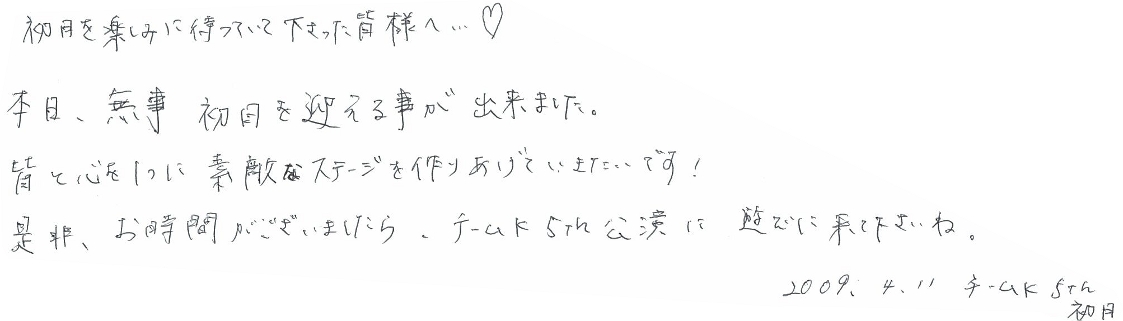 初日を楽しみに待っていて下さった皆様へ…♡
本日、無事 初日を迎える事が出来ました。
皆と心を1つに 素敵なステージを作りあげていきたいです!
是非、お時間がございましたら、チームK 5th 公演に 遊びに来て下さいね。
2009. 4. 11 チームK 5th
初日